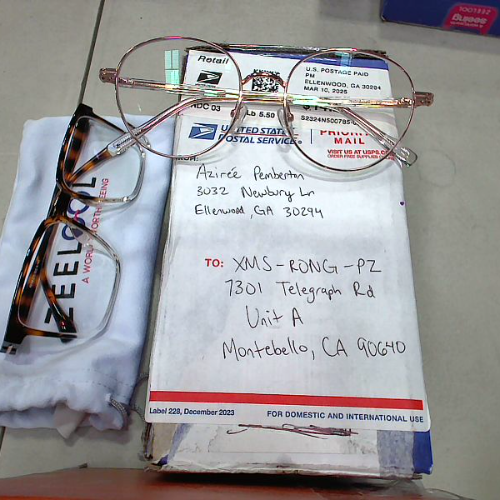 Retail
U.S. POSTAGE PAID
PM
ELLENWOOD, GA 30294
MAR 10, 2025
RDC 03
Lb 5.50
UNITED STATES
POSTAL SERVICE
PRIORITY
MAIL
VISIT US AT USPS.COM
ORDER FREE SUPPLIES ONLINE
Aziree Pemberton
3032 Newbury Ln
Ellenwood, GA 30294
TO: XMS-RONG-PZ
7301 Telegraph Rd
Unit A
Montebello, CA 90640
Label 228, December 2023
FOR DOMESTIC AND INTERNATIONAL USE
ZEELOOL
A WORLD WORTH SEEING
ZEELOOL
seeing